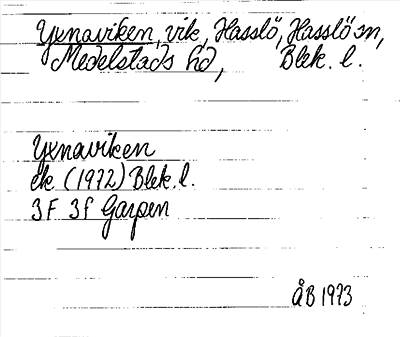 Yxnaviken, vik, Hasslö, Hasslö sn,
Medelstads hd, Blek. l.
Yxnaviken
ek (1972) Blek. l.
3F 3f Garpen
ÅB 1973